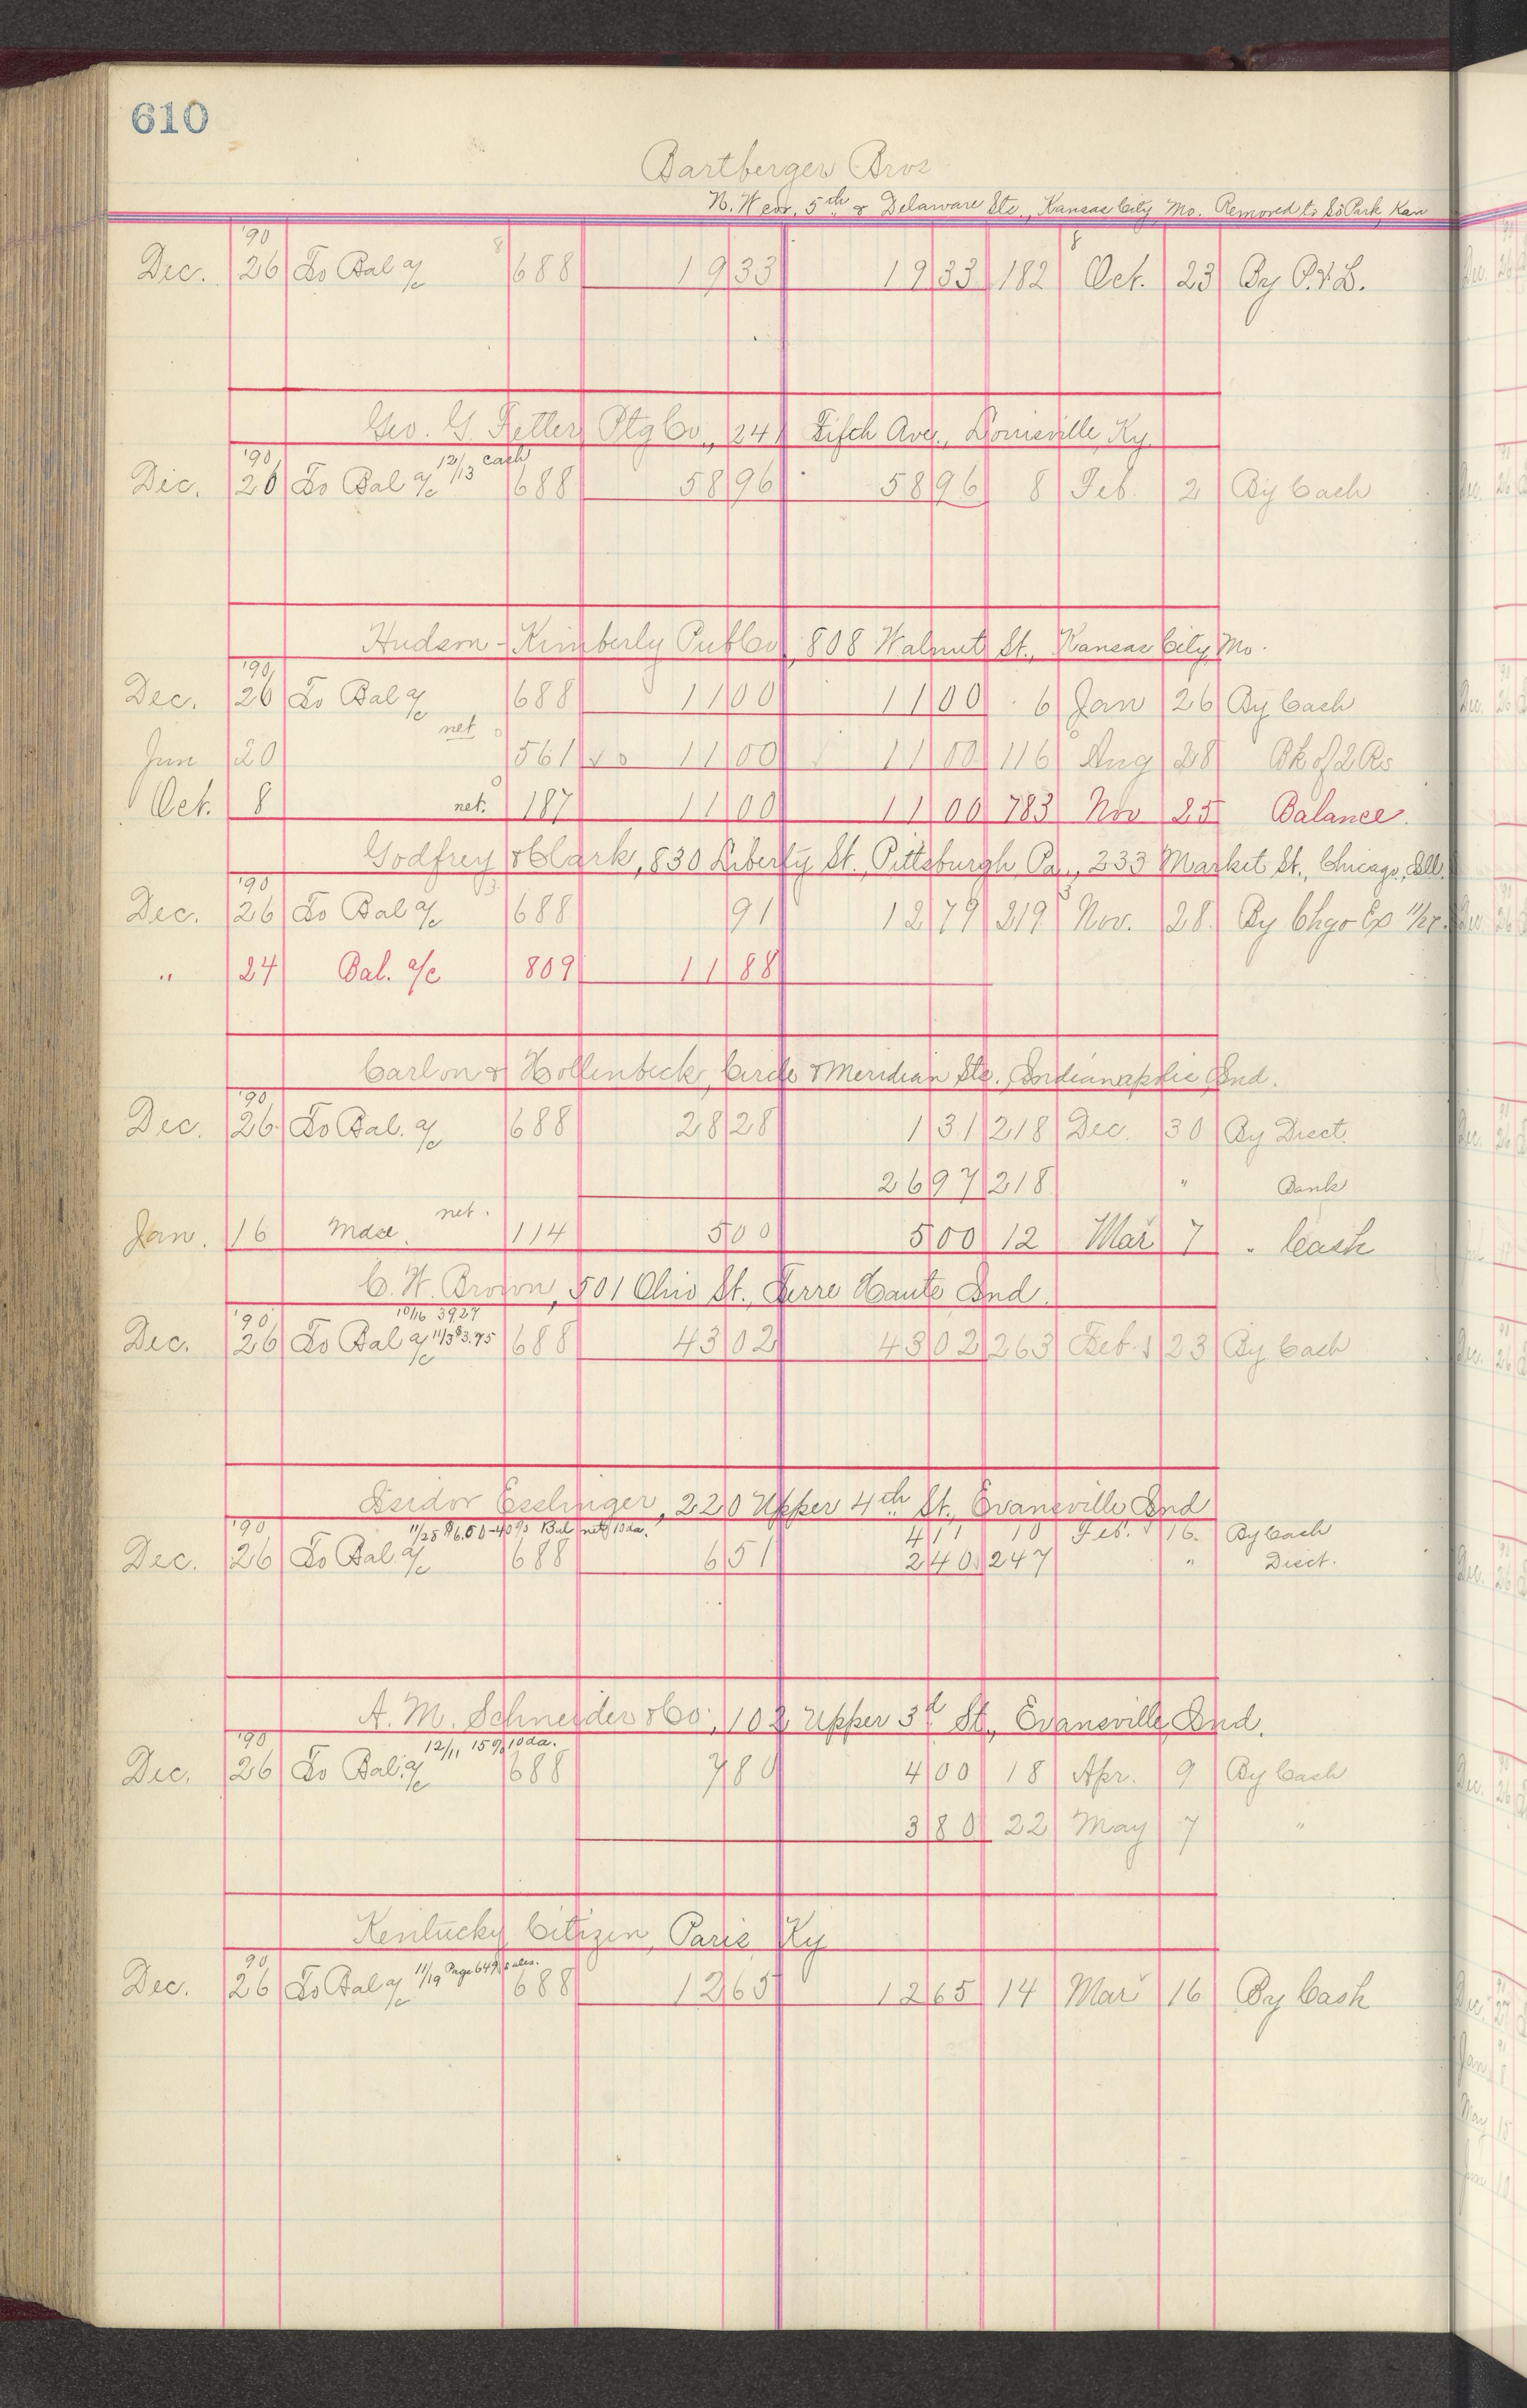 610
Bartberger Bros
N. W cor. 5th & Delaware Sts., Kansas City, Mo. Removed to So Park, Kan
'90 8 8
Dec. 26 To Bal a/c 688 19 33 19 33 182 Oct. 23 By P. & L.
Geo. G. Fetter Ptg Co., 241 Fifth Ave., Louisville, Ky.
'90 12/13 Cash
Dec. 26 To Bal a/c 688 58 96 58 96 8 Feb. 2 By Cash
Hudson-Kimberly Pub Co, 808 Walnut St., Kansas City, Mo.
'90
Dec. 26 To Bal a/c 688 11 00 11 00 6 Jan 26 By Cash
Jun 20 net 561 11 00 11 00 116 Aug 28 Bk of 2 Rs
Oct. 8 net. 187 11 00 11 00 783 Nov 25 Balance.
Godfrey & Clark, 830 Liberty St. Pittsburgh, Pa., 233 Market St., Chicago, Ill.
'90
Dec. 26 To Bal a/c 688 91 12 79 219 Nov. 28 By Chgo Ex 11/27.
" 24 Bal. a/c 809 11 88
Carlon & Hollenbeck, Circle & Meridian Sts., Indianapolis, Ind.
'90
Dec. 26 To Bal. a/c 688 28 28 1 31 218 Dec. 30 By Disct.
26 97 218 " Bank
Jan. 16 Mdse. net. 114 5 00 5 00 12 Mar 7 " Cash
C. W. Brown, 501 Ohio St., Terre Haute Ind.
'90 10/16 3927
Dec. 26 To Bal a/c 11/3 $3.75 688 43 02 43 02 263 Feb. 23 By Cash
Isidor Esslinger, 220 Upper 4th St., Evansville Ind
'90 11/25 $6.50-40% Bal net 10 da. 4 11 10 Feb. 16. By Cash
Dec. 26 To Bal. a/c 688 6 51 2 40 247 " Disct.
A. M. Schneider & Co., 102 Upper 3d St., Evansville, Ind.
'90 12/11 15% 10 da.
Dec. 26 To Bal. a/c 688 7 80 4 00 18 Apr. 9 By Cash
3 80 22 May 7 "
Kentucky Citizen, Paris, Ky
90 11/19 Page 649 sales.
Dec. 26 To Bal a/c 688 12 65 12 65 14 Mar 16 By Cash